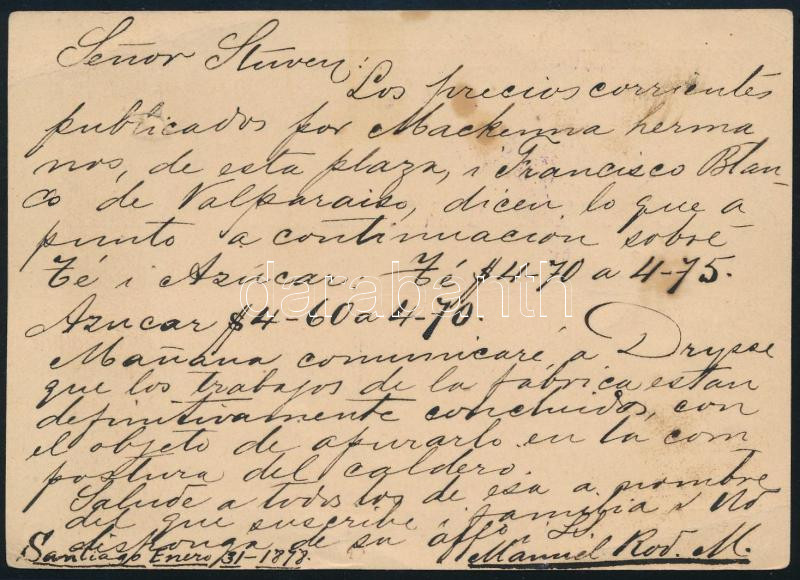 Señor Stuven:
Los precios corrientes
publicados por Mackenna herma
nos, de esta plaza, i Francisco Blan-
co de Valparaiso, dicen lo que a
punto a continuacion sobre
Té i Azúcar. Té $4-70 a 4-75.
Azucar $4-60 a 4-70.
Mañana comunicaré, a Drysse
que los trabajos de la fábrica estan
definitivamente concluidos, con
el objeto de apurarlo en la com
postura del caldero.
Salude a todos los de esa a nombre
del que suscribe i familia i
disponga de su affo i
Santiago Enero 31-1898.
Manuel Rod. M.
darabanth